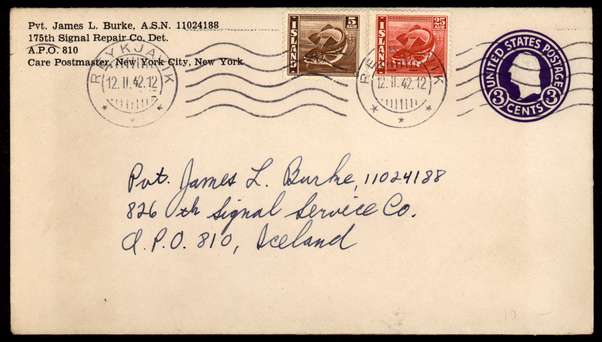 Pvt. James L. Burke, A.S.N. 11024188
175th Signal Repair Co. Det.
A.P.O. 810
Care Postmaster, New York City, New York
5 AUR
ISLAND
25 AUR
ISLAND
UNITED STATES POSTAGE
3 CENTS 3
REYKJAVIK
12.II.42.12
REYKJAVIK
12.II.42.12
Pvt. James L. Burke, 11024188
826 th Signal Service Co.
A.P.O. 810, Iceland